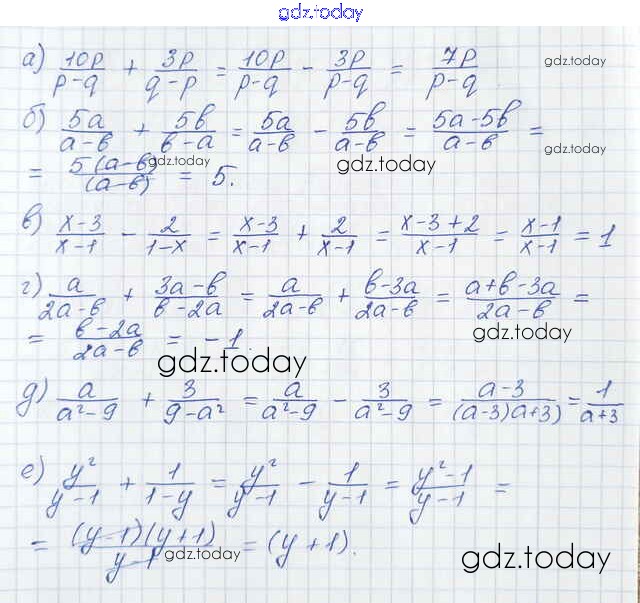 gdz.today
а) 10p/(p-q) + 3p/(q-p) = 10p/(p-q) - 3p/(p-q) = 7p/(p-q) gdz.today
б) 5a/(a-в) + 5в/(в-a) = 5a/(a-в) - 5в/(a-в) = (5a-5в)/(a-в) =
= 5(a-в)/(a-в) = 5. gdz.today gdz.today gdz.today
в) (x-3)/(x-1) - 2/(1-x) = (x-3)/(x-1) + 2/(x-1) = (x-3+2)/(x-1) = (x-1)/(x-1) = 1
г) a/(2a-в) + (3a-в)/(в-2a) = a/(2a-в) + (в-3a)/(2a-в) = (a+в-3a)/(2a-в) =
= (в-2a)/(2a-в) = -1. gdz.today
gdz.today
д) a/(a²-9) + 3/(9-a²) = a/(a²-9) - 3/(a²-9) = (a-3)/((a-3)a+3) = 1/(a+3)
е) y²/(y-1) + 1/(1-y) = y²/(y-1) - 1/(y-1) = (y²-1)/(y-1) =
= (y-1)(y+1)/(y-1) = (y+1). gdz.today gdz.today